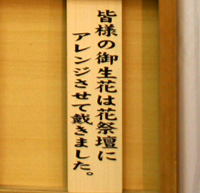 皆様の御生花は花祭壇に
アレンジさせて戴きました。